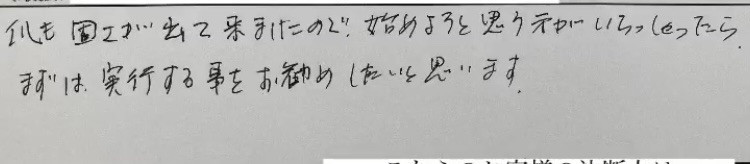 私も固定が出て来ましたので、始めようと思う方がいらっしゃったら、
まずは、実行する事をお勧めしたいと思います。